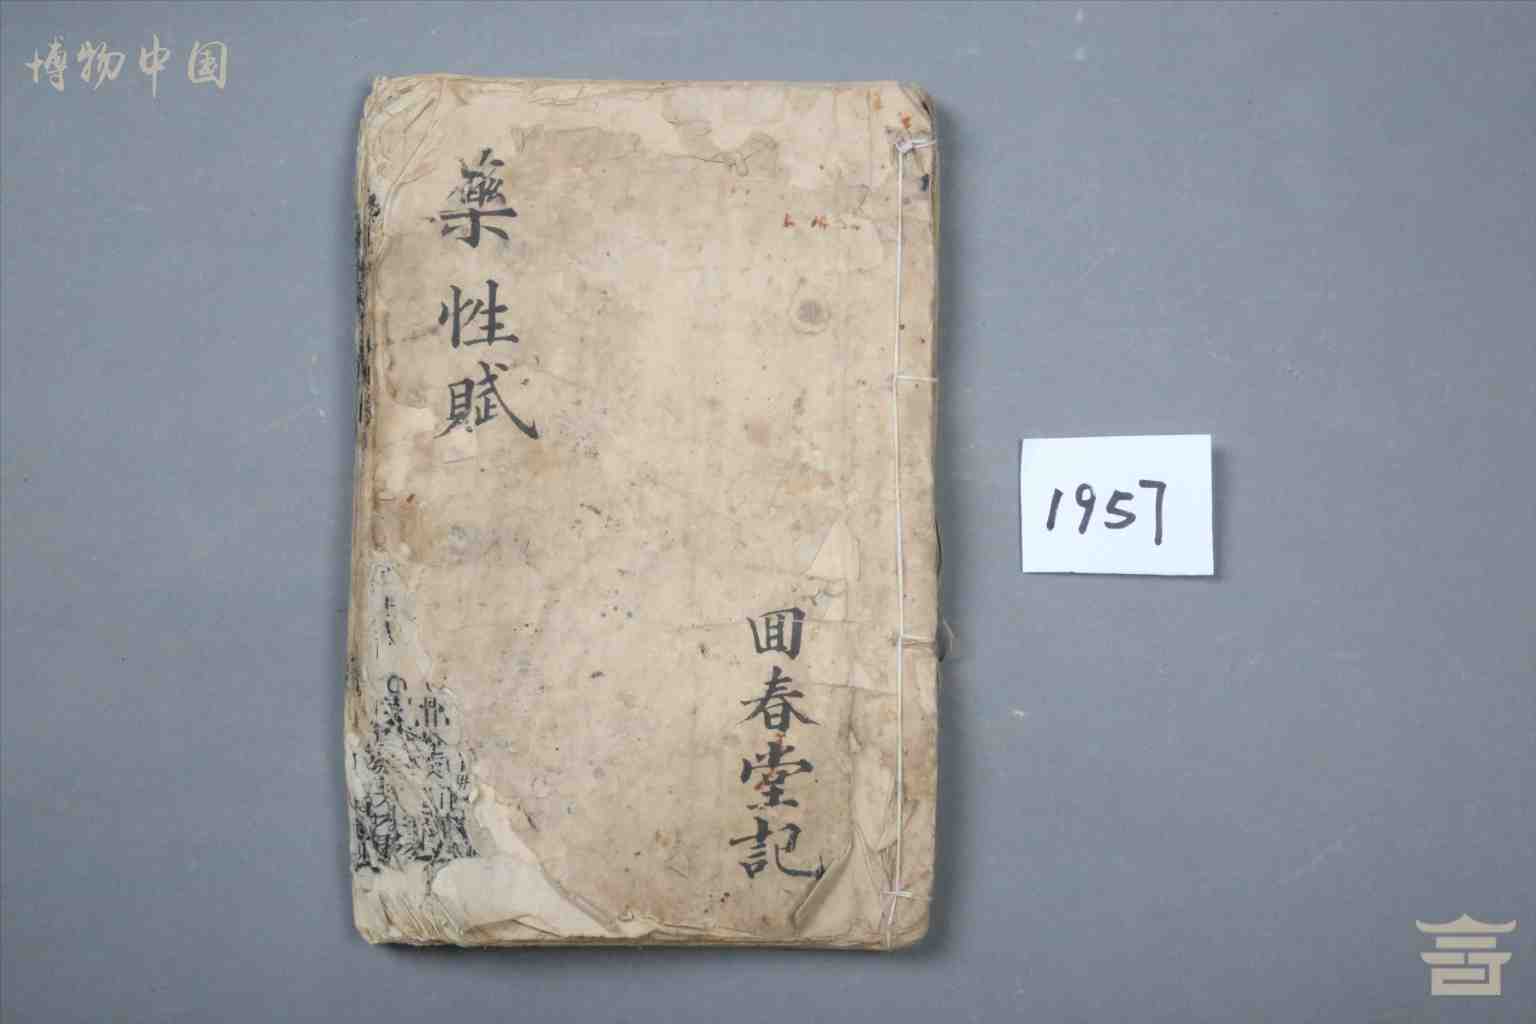 博物中国
藥性賦
囬春堂記
1957